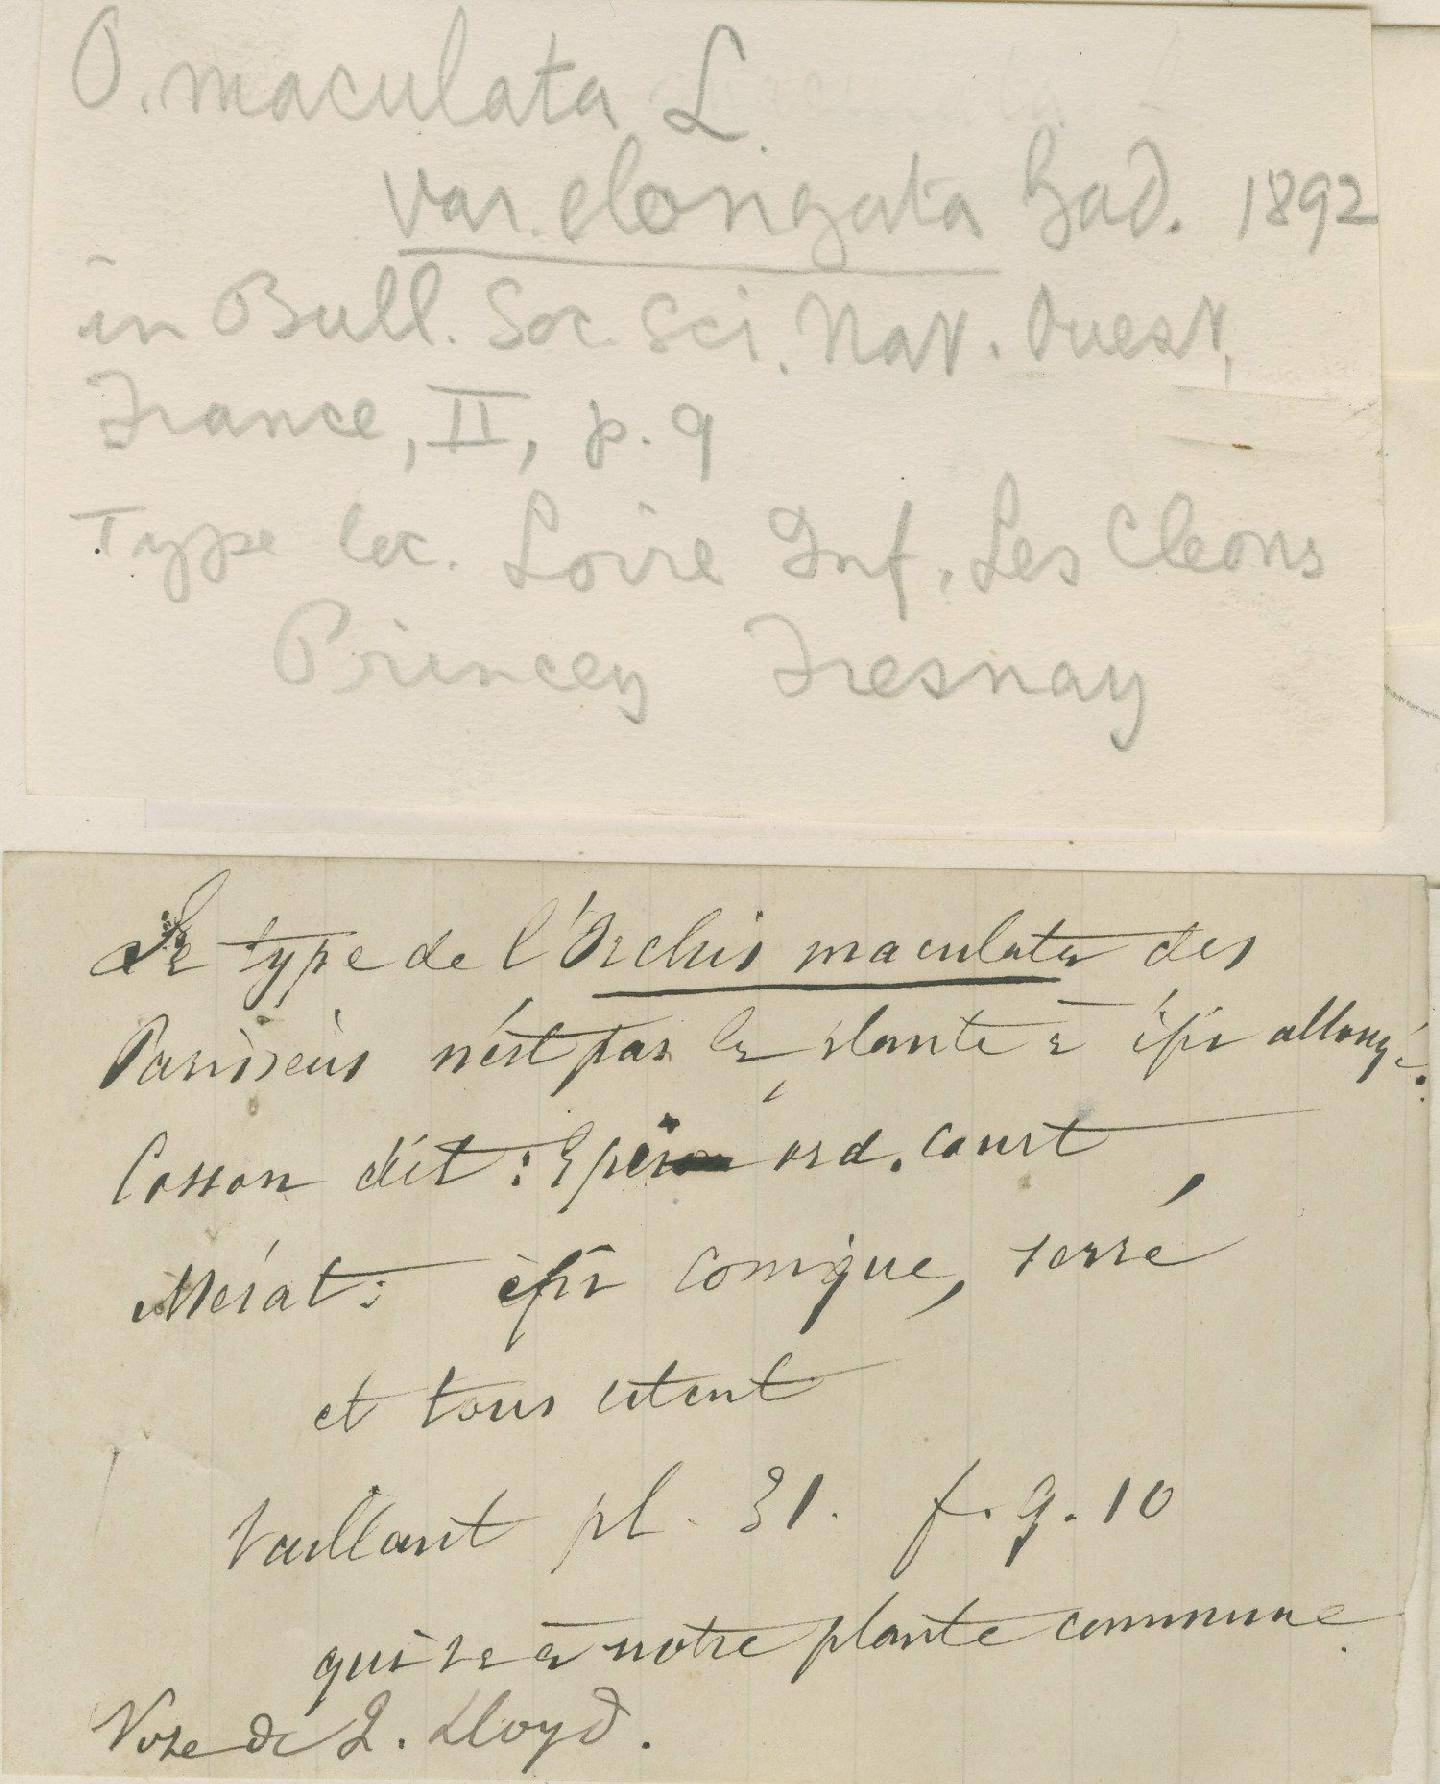 O. maculata L.
var. elongata Gad. 1892
in Bull. Soc. Sci. Nat. Ouest,
France, II, p. 9
Type loc. Loire Inf. Les Cleons
Princey Fresnay
Le type de l'Orchis maculata des
Parisiens n'est pas la plante à épi allongé.
Cosson dit : Epi ord. court
Mérat : épi conique, serré
et tous citent
Vaillant pl. 31. f. 9. 10
qui va à notre plante commune.
Note de J. Lloyd.